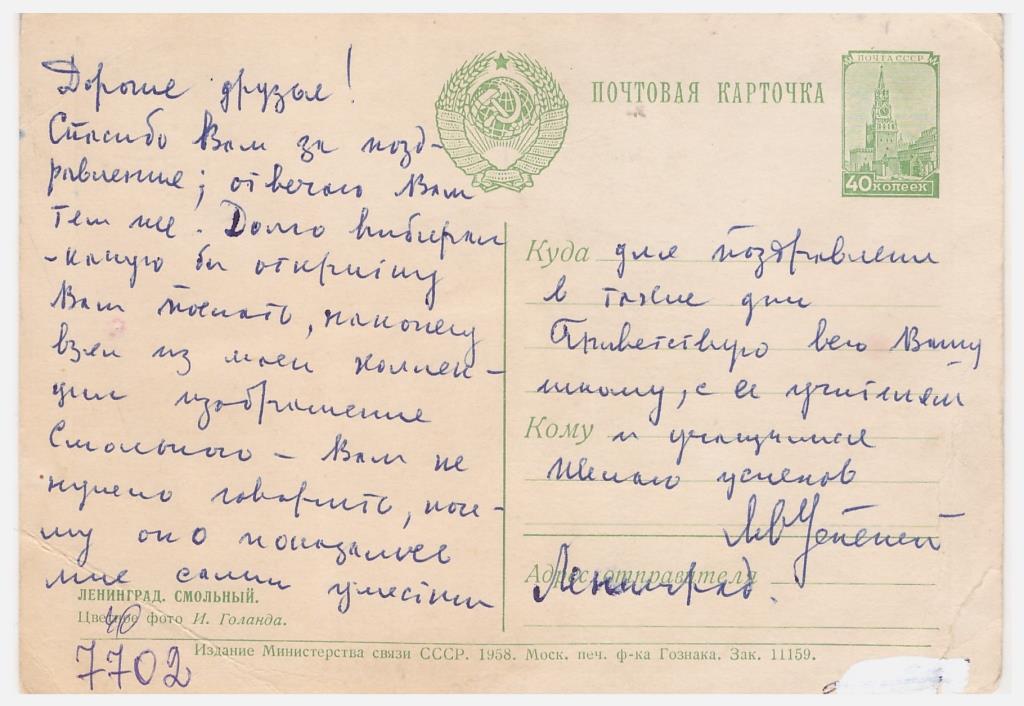 Дорогие друзья!
Спасибо Вам за позд-
равление; отвечаю Вам
тем же. Долго выбирал
-какую бы открытку
Вам послать, наконец
взял из моей коллек-
ции изображение
Смольного - Вам не
нужно говорить, поче-
му оно показалось
мне самым уместным
ЛЕНИНГРАД. СМОЛЬНЫЙ.
Цветное фото И. Голанда.
40
7702
ПОЧТОВАЯ КАРТОЧКА
ПОЧТА СССР
40 копеек
Куда для поздравления
в такие дни
Приветствую всю Вашу
школу, с ее учителями
Кому и учащимися
Желаю успехов
Лв Успенский
Адрес отправителя
Ленинград.
Издание Министерства связи СССР. 1958. Моск. печ. ф-ка Гознака. Зак. 11159.